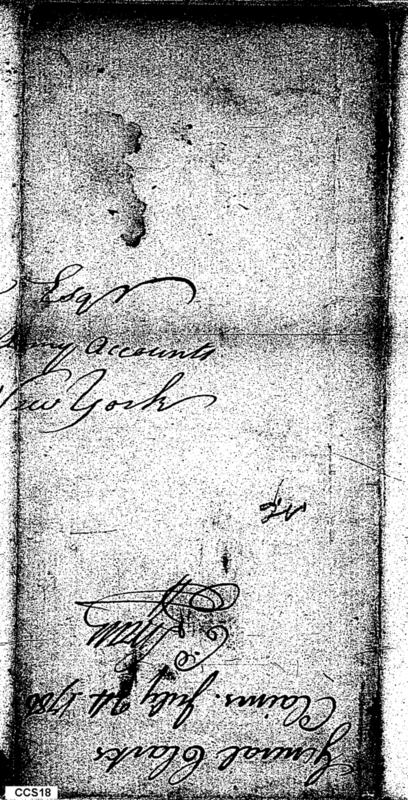 Esqr
Army accounts
New York
General Clarks
Claims. July 24 1786
CCS18